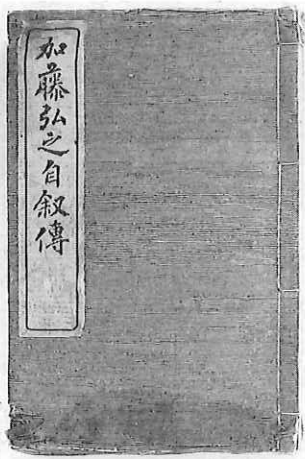 加藤弘之自叙傳